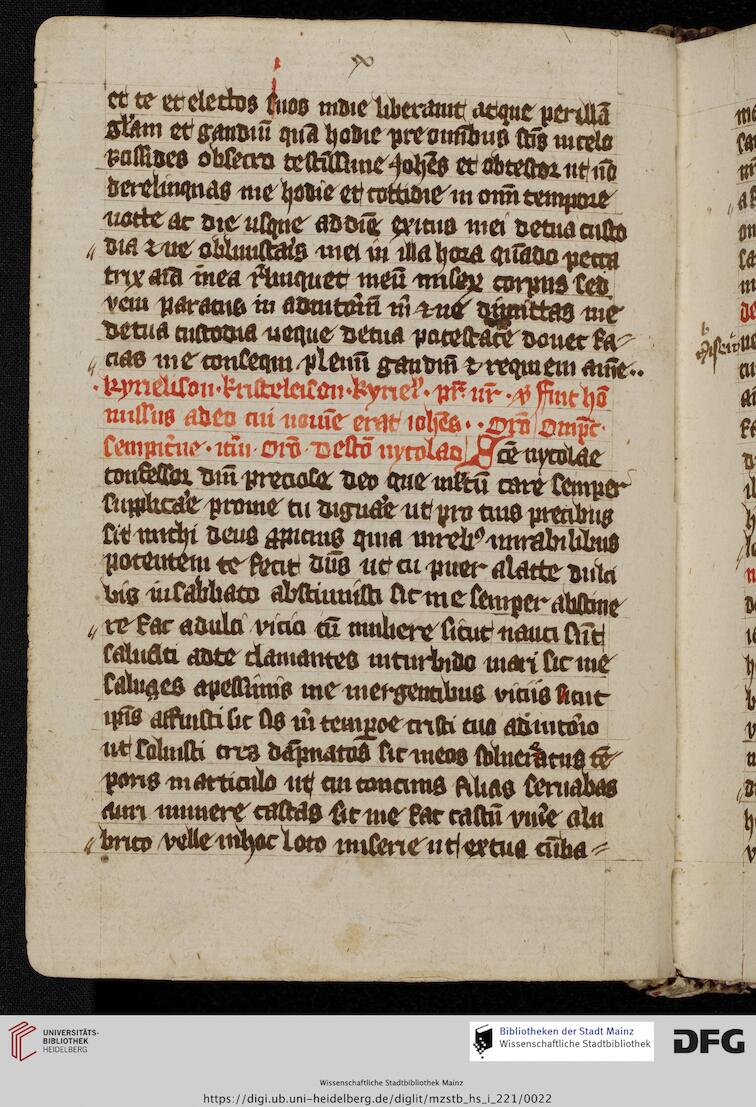 et te et electos suos indie liberauit atque per illā
gl'am et gaudiū quā hodie pre omnibus scīs in celo
possides obsecro testissime Johēs et obtestor ut nō
derelinquas me hodie et cottidie in omī tempore
nocte ac die usque ad diē exitus mei de tua custo
dia & ne obliuiscaris mei in illa hora quādo pecca
trix aīa mea r̄linquet meū miserū corpus sed
veni paratus in adiutoriū m̄ & ne dimittas me
de tua custodia neque de tua potestate donec fa⸗
cias me consequi plenū gaudiū & requiem amē..
·kyrieleison·kristeleison·kyriel'·pr̄·nr̄·v̄ Fuit hō
missus a deo cui nomē erat iohēs··Orō Omps̄·
sempit'ne·itū·Orō·de scō nycolao Scē nycolae
confessor dnī preciose deo que in xp̄tū care semper
supplicare pro me tu dignare ut pro tuis precibus
sit michi deus apicius quia in rebus mirabilibus
potentem te fecit dn̄s ut tu puer a lacte dulci
bis in sabbato abstinuisti sic me semper abstine
re fac a dulci vicio cū muliere sicut nauci sūt
saluati ad te clamantes in turbido mari sic me
salues a pessimis me mergentibus viciis sicut
ip̄is affuisti sic sis m̄ tempore tristi tuo adiutorio
ut soluisti tres dāpnatos sic meos solue reatus tē⸗
poris in articulo ut tu continuis filias seruabas
auri munere castas sic me fac castū viu'e a lu
brico velle in hoc loco miserie ut ex tua cūba⸗
UNIVERSITÄTS-
BIBLIOTHEK
HEIDELBERG
Bibliotheken der Stadt Mainz
Wissenschaftliche Stadtbibliothek
DFG
Wissenschaftliche Stadtbibliothek Mainz
https://digi.ub.uni-heidelberg.de/diglit/mzstb_hs_i_221/0022